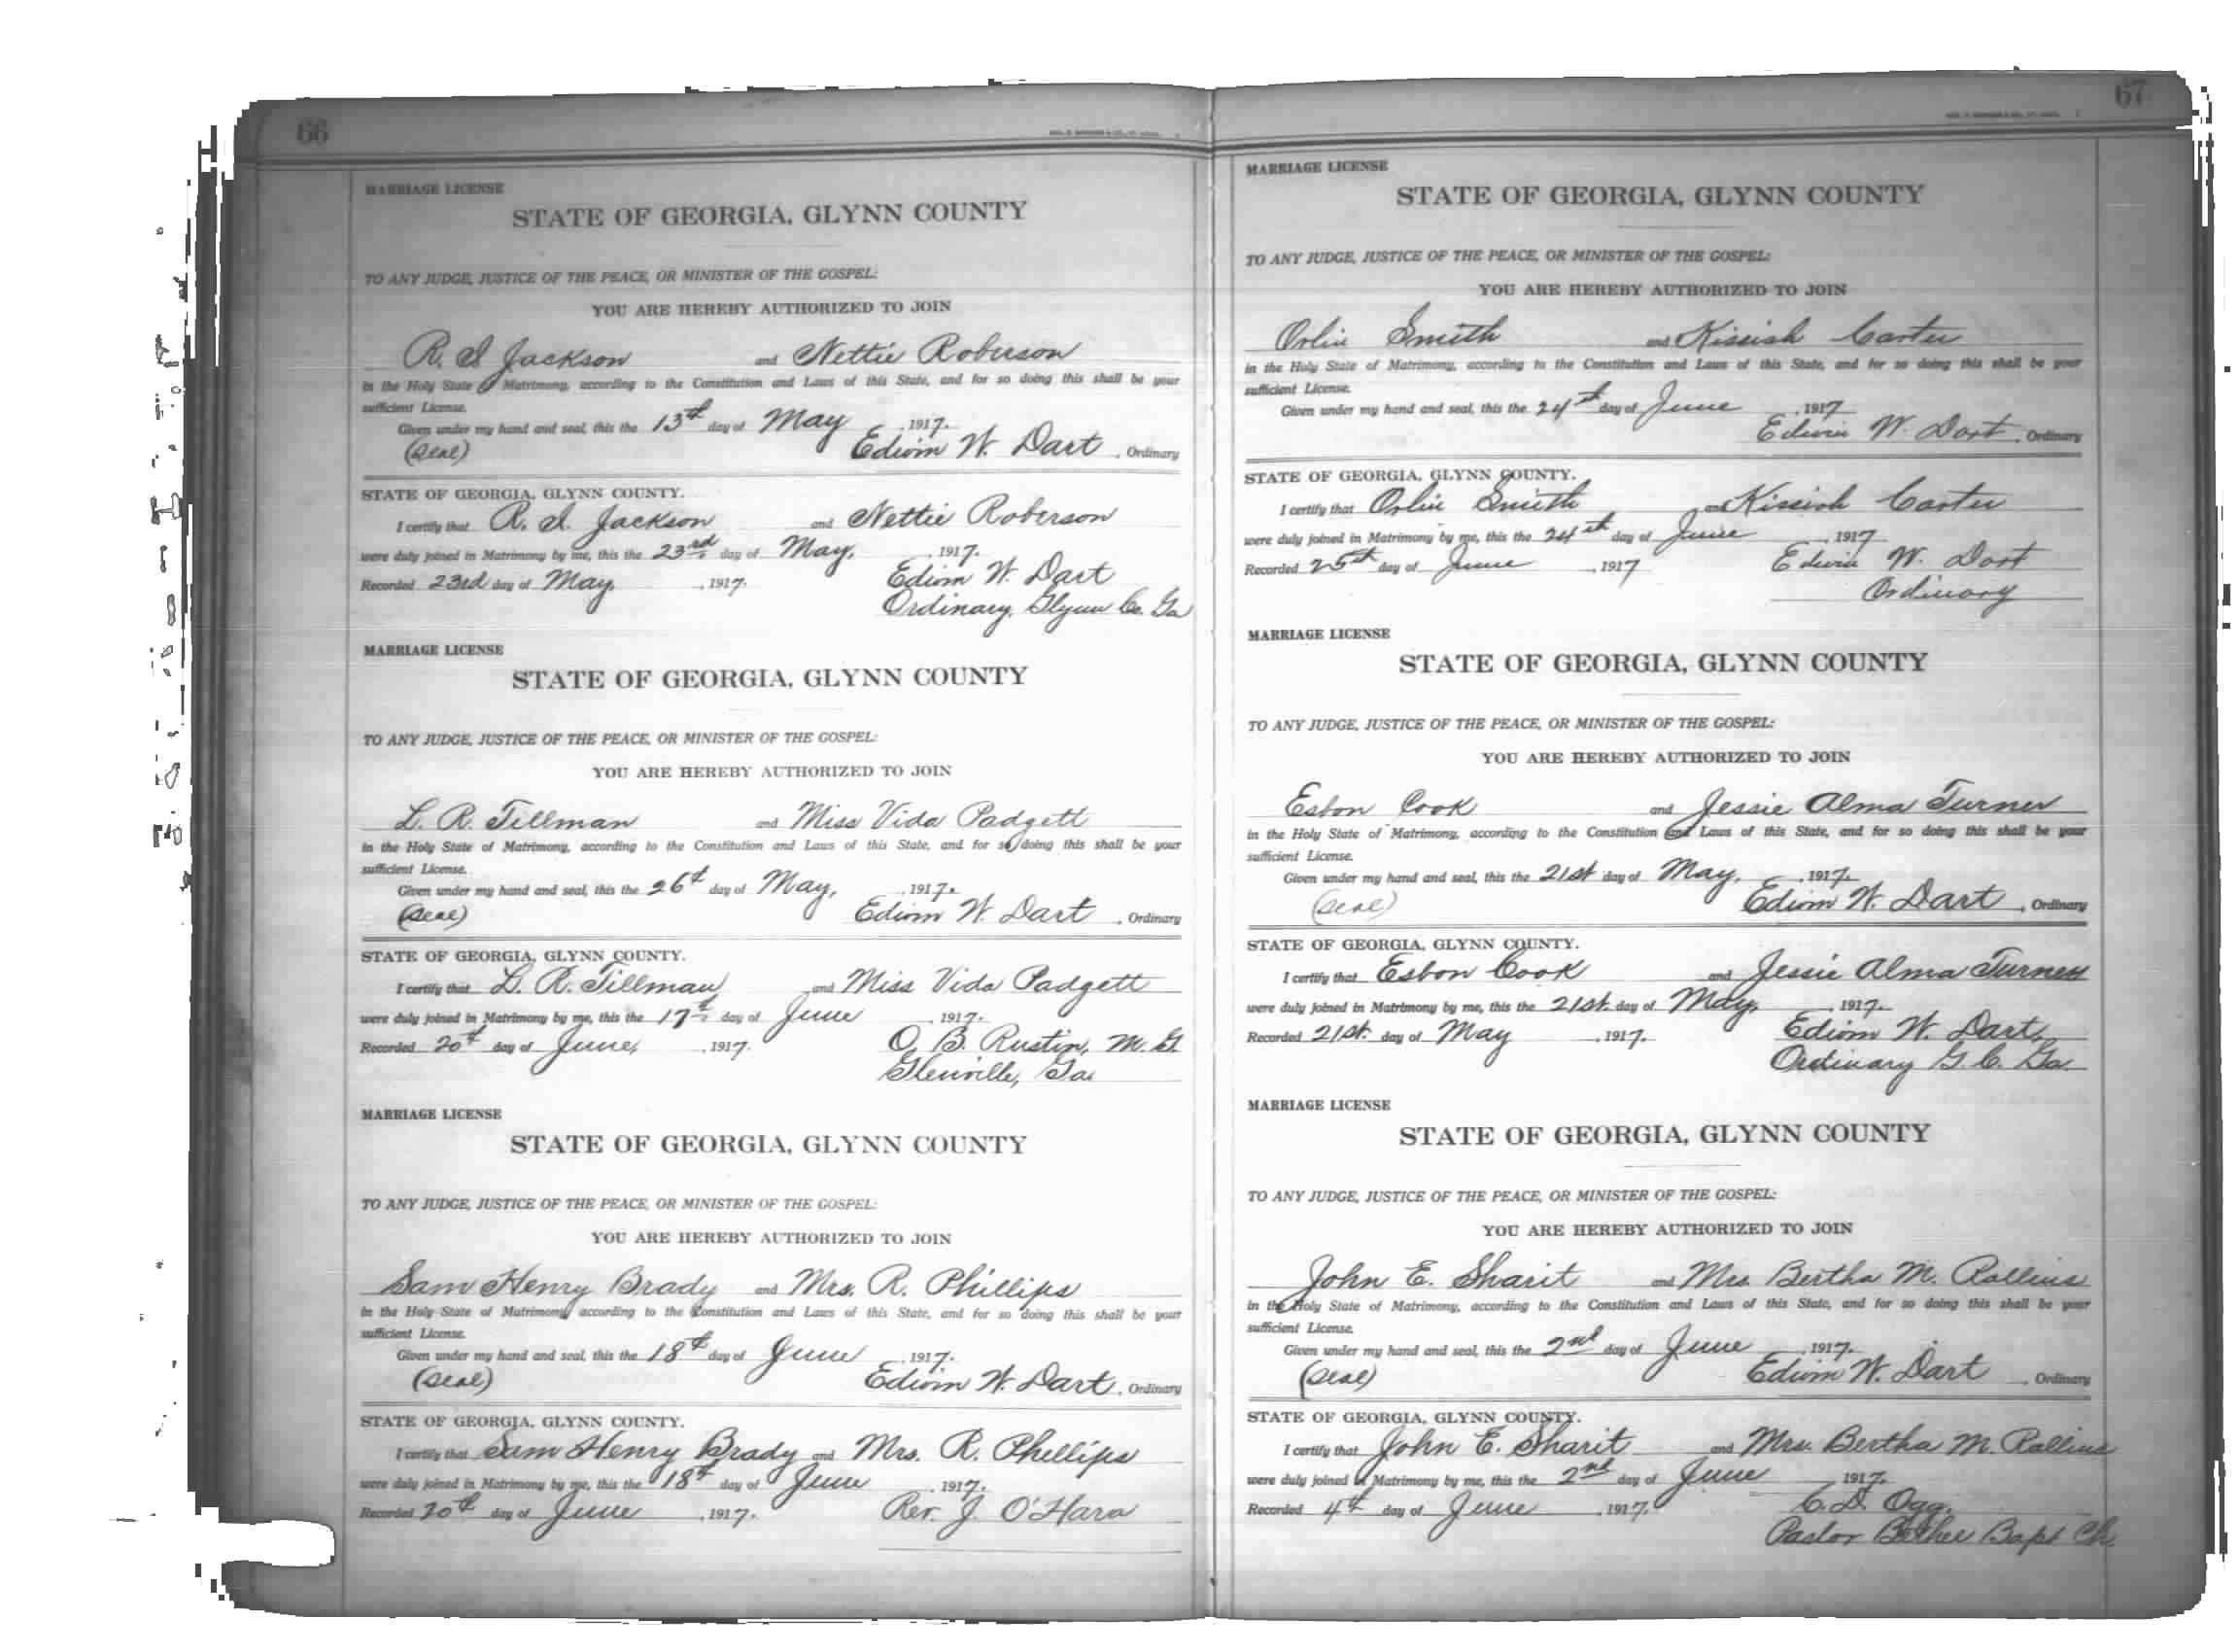 66
MARRIAGE LICENSE
STATE OF GEORGIA, GLYNN COUNTY
TO ANY JUDGE, JUSTICE OF THE PEACE, OR MINISTER OF THE GOSPEL:
YOU ARE HEREBY AUTHORIZED TO JOIN
R. S Jackson and Nettie Roberson
in the Holy State of Matrimony, according to the Constitution and Laws of this State, and for so doing this shall be your
sufficient License.
Given under my hand and seal, this the 13th day of May, 1917.
(Seal) Edwin W. Dart, Ordinary
STATE OF GEORGIA, GLYNN COUNTY.
I certify that R. S. Jackson and Nettie Roberson
were duly joined in Matrimony by me, this the 23rd day of May, 1917.
Recorded 23rd day of May, 1917. Edwin W. Dart
Ordinary, Glynn Co. Ga
MARRIAGE LICENSE
STATE OF GEORGIA, GLYNN COUNTY
TO ANY JUDGE, JUSTICE OF THE PEACE, OR MINISTER OF THE GOSPEL:
YOU ARE HEREBY AUTHORIZED TO JOIN
L. R. Tillman and Miss Vida Padgett
in the Holy State of Matrimony, according to the Constitution and Laws of this State, and for so doing this shall be your
sufficient License.
Given under my hand and seal, this the 26th day of May, 1917.
(Seal) Edwin W. Dart, Ordinary
STATE OF GEORGIA, GLYNN COUNTY.
I certify that L. R. Tillman and Miss Vida Padgett
were duly joined in Matrimony by me, this the 17th day of June, 1917.
Recorded 20th day of June, 1917. O. B. Rustin, M. G.
Glenville, Ga.
MARRIAGE LICENSE
STATE OF GEORGIA, GLYNN COUNTY
TO ANY JUDGE, JUSTICE OF THE PEACE, OR MINISTER OF THE GOSPEL:
YOU ARE HEREBY AUTHORIZED TO JOIN
Sam Henry Brady and Mrs. R. Phillips
in the Holy State of Matrimony, according to the Constitution and Laws of this State, and for so doing this shall be your
sufficient License.
Given under my hand and seal, this the 18th day of June, 1917.
(Seal) Edwin W. Dart, Ordinary
STATE OF GEORGIA, GLYNN COUNTY.
I certify that Sam Henry Brady and Mrs. R. Phillips
were duly joined in Matrimony by me, this the 18th day of June, 1917.
Recorded 20th day of June, 1917. Rev. J. O'Hara
67
MARRIAGE LICENSE
STATE OF GEORGIA, GLYNN COUNTY
TO ANY JUDGE, JUSTICE OF THE PEACE, OR MINISTER OF THE GOSPEL:
YOU ARE HEREBY AUTHORIZED TO JOIN
Orlin Smith and Kissiah Carter
in the Holy State of Matrimony, according to the Constitution and Laws of this State, and for so doing this shall be your
sufficient License.
Given under my hand and seal, this the 24th day of June, 1917
Edwin W. Dart, Ordinary
STATE OF GEORGIA, GLYNN COUNTY.
I certify that Orlin Smith and Kissiah Carter
were duly joined in Matrimony by me, this the 24th day of June, 1917
Recorded 25th day of June, 1917 Edwin W. Dart
Ordinary
MARRIAGE LICENSE
STATE OF GEORGIA, GLYNN COUNTY
TO ANY JUDGE, JUSTICE OF THE PEACE, OR MINISTER OF THE GOSPEL:
YOU ARE HEREBY AUTHORIZED TO JOIN
Esbon Cook and Jessie Alma Turner
in the Holy State of Matrimony, according to the Constitution and Laws of this State, and for so doing this shall be your
sufficient License.
Given under my hand and seal, this the 21st day of May, 1917.
(Seal) Edwin W. Dart, Ordinary
STATE OF GEORGIA, GLYNN COUNTY.
I certify that Esbon Cook and Jessie Alma Turner
were duly joined in Matrimony by me, this the 21st. day of May, 1917.
Recorded 21st. day of May, 1917. Edwin W. Dart,
Ordinary G. C. Ga.
MARRIAGE LICENSE
STATE OF GEORGIA, GLYNN COUNTY
TO ANY JUDGE, JUSTICE OF THE PEACE, OR MINISTER OF THE GOSPEL:
YOU ARE HEREBY AUTHORIZED TO JOIN
John E. Sharit and Mrs Bertha M. Rollins
in the Holy State of Matrimony, according to the Constitution and Laws of this State, and for so doing this shall be your
sufficient License.
Given under my hand and seal, this the 2nd day of June, 1917.
(Seal) Edwin W. Dart, Ordinary
STATE OF GEORGIA, GLYNN COUNTY.
I certify that John E. Sharit and Mrs. Bertha M. Rollins
were duly joined in Matrimony by me, this the 2nd day of June, 1917.
Recorded 4th day of June, 1917. C. D. Ogg.
Pastor Bapt Ch.